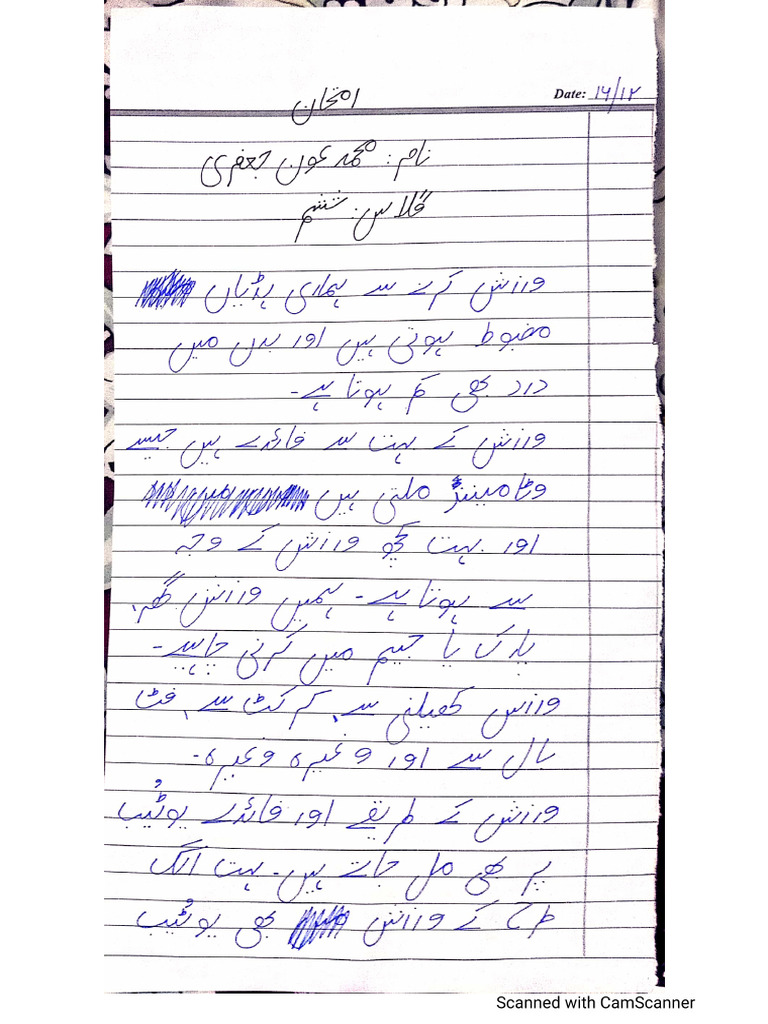 Date: ۱۶/۱۲
امتحان
نام: محمد عون جعفری
کلاس: ششم
ورزش کرنے سے ہماری ہڈیاں
مضبوط ہوتی ہیں اور بدن میں
درد بھی کم ہوتا ہے۔
ورزش کے بہت سے فائدے ہیں جیسے
وٹامینز ملتی ہیں
اور بہت کچھ ورزش کے وجہ
سے ہوتا ہے۔ ہمیں ورزش گھر،
پارک یا جیم میں کرنی چاہیے۔
ورزس کھیلنی سے، کرکٹ سے، فٹ
بال سے اور وغیرہ وغیرہ۔
ورزش کے طریقے اور فائدے یوٹیُب
پر بھی مل جاتے ہیں۔ بہت الگ
طرح کے ورزش بھی یوٹیُب
Scanned with CamScanner